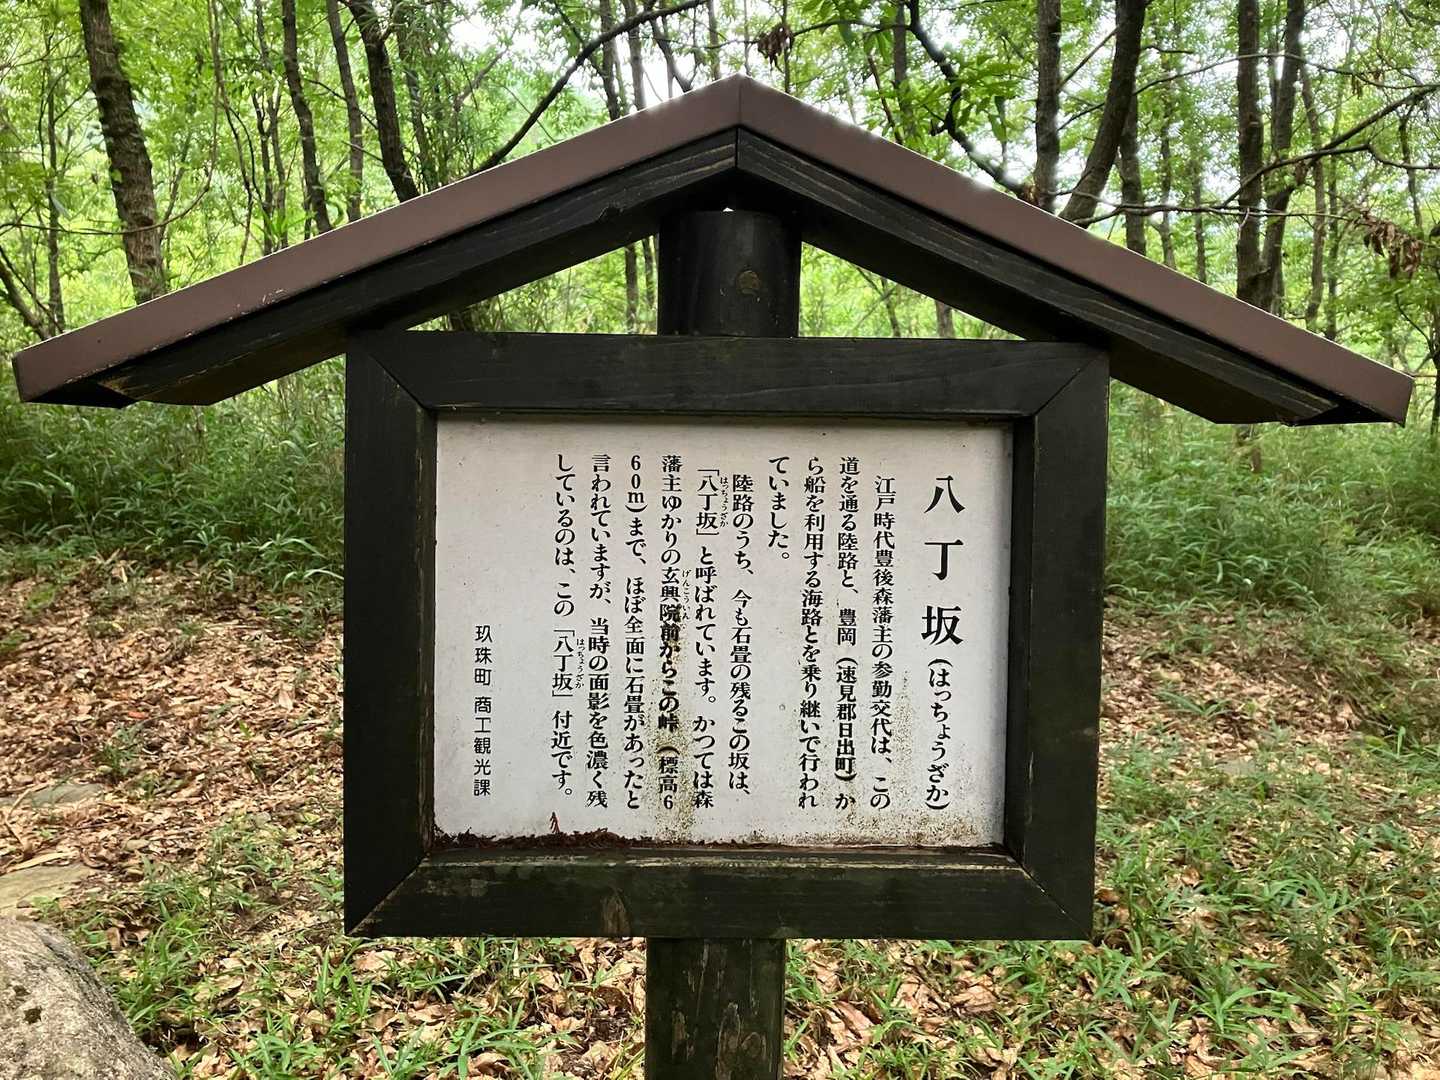 八丁坂（はっちょうざか）
江戸時代豊後森藩主の参勤交代は、この
道を通る陸路と、豊岡（速見郡日出町）か
ら船を利用する海路とを乗り継いで行われ
ていました。
陸路のうち、今も石畳の残るこの坂は、
はっちょうざか
「八丁坂」と呼ばれています。かつては森
げんこういん
藩主ゆかりの玄興院前からこの峠（標高6
60m）まで、ほぼ全面に石畳があったと
言われていますが、当時の面影を色濃く残
はっちょうざか
しているのは、この「八丁坂」付近です。
玖珠町 商工観光課